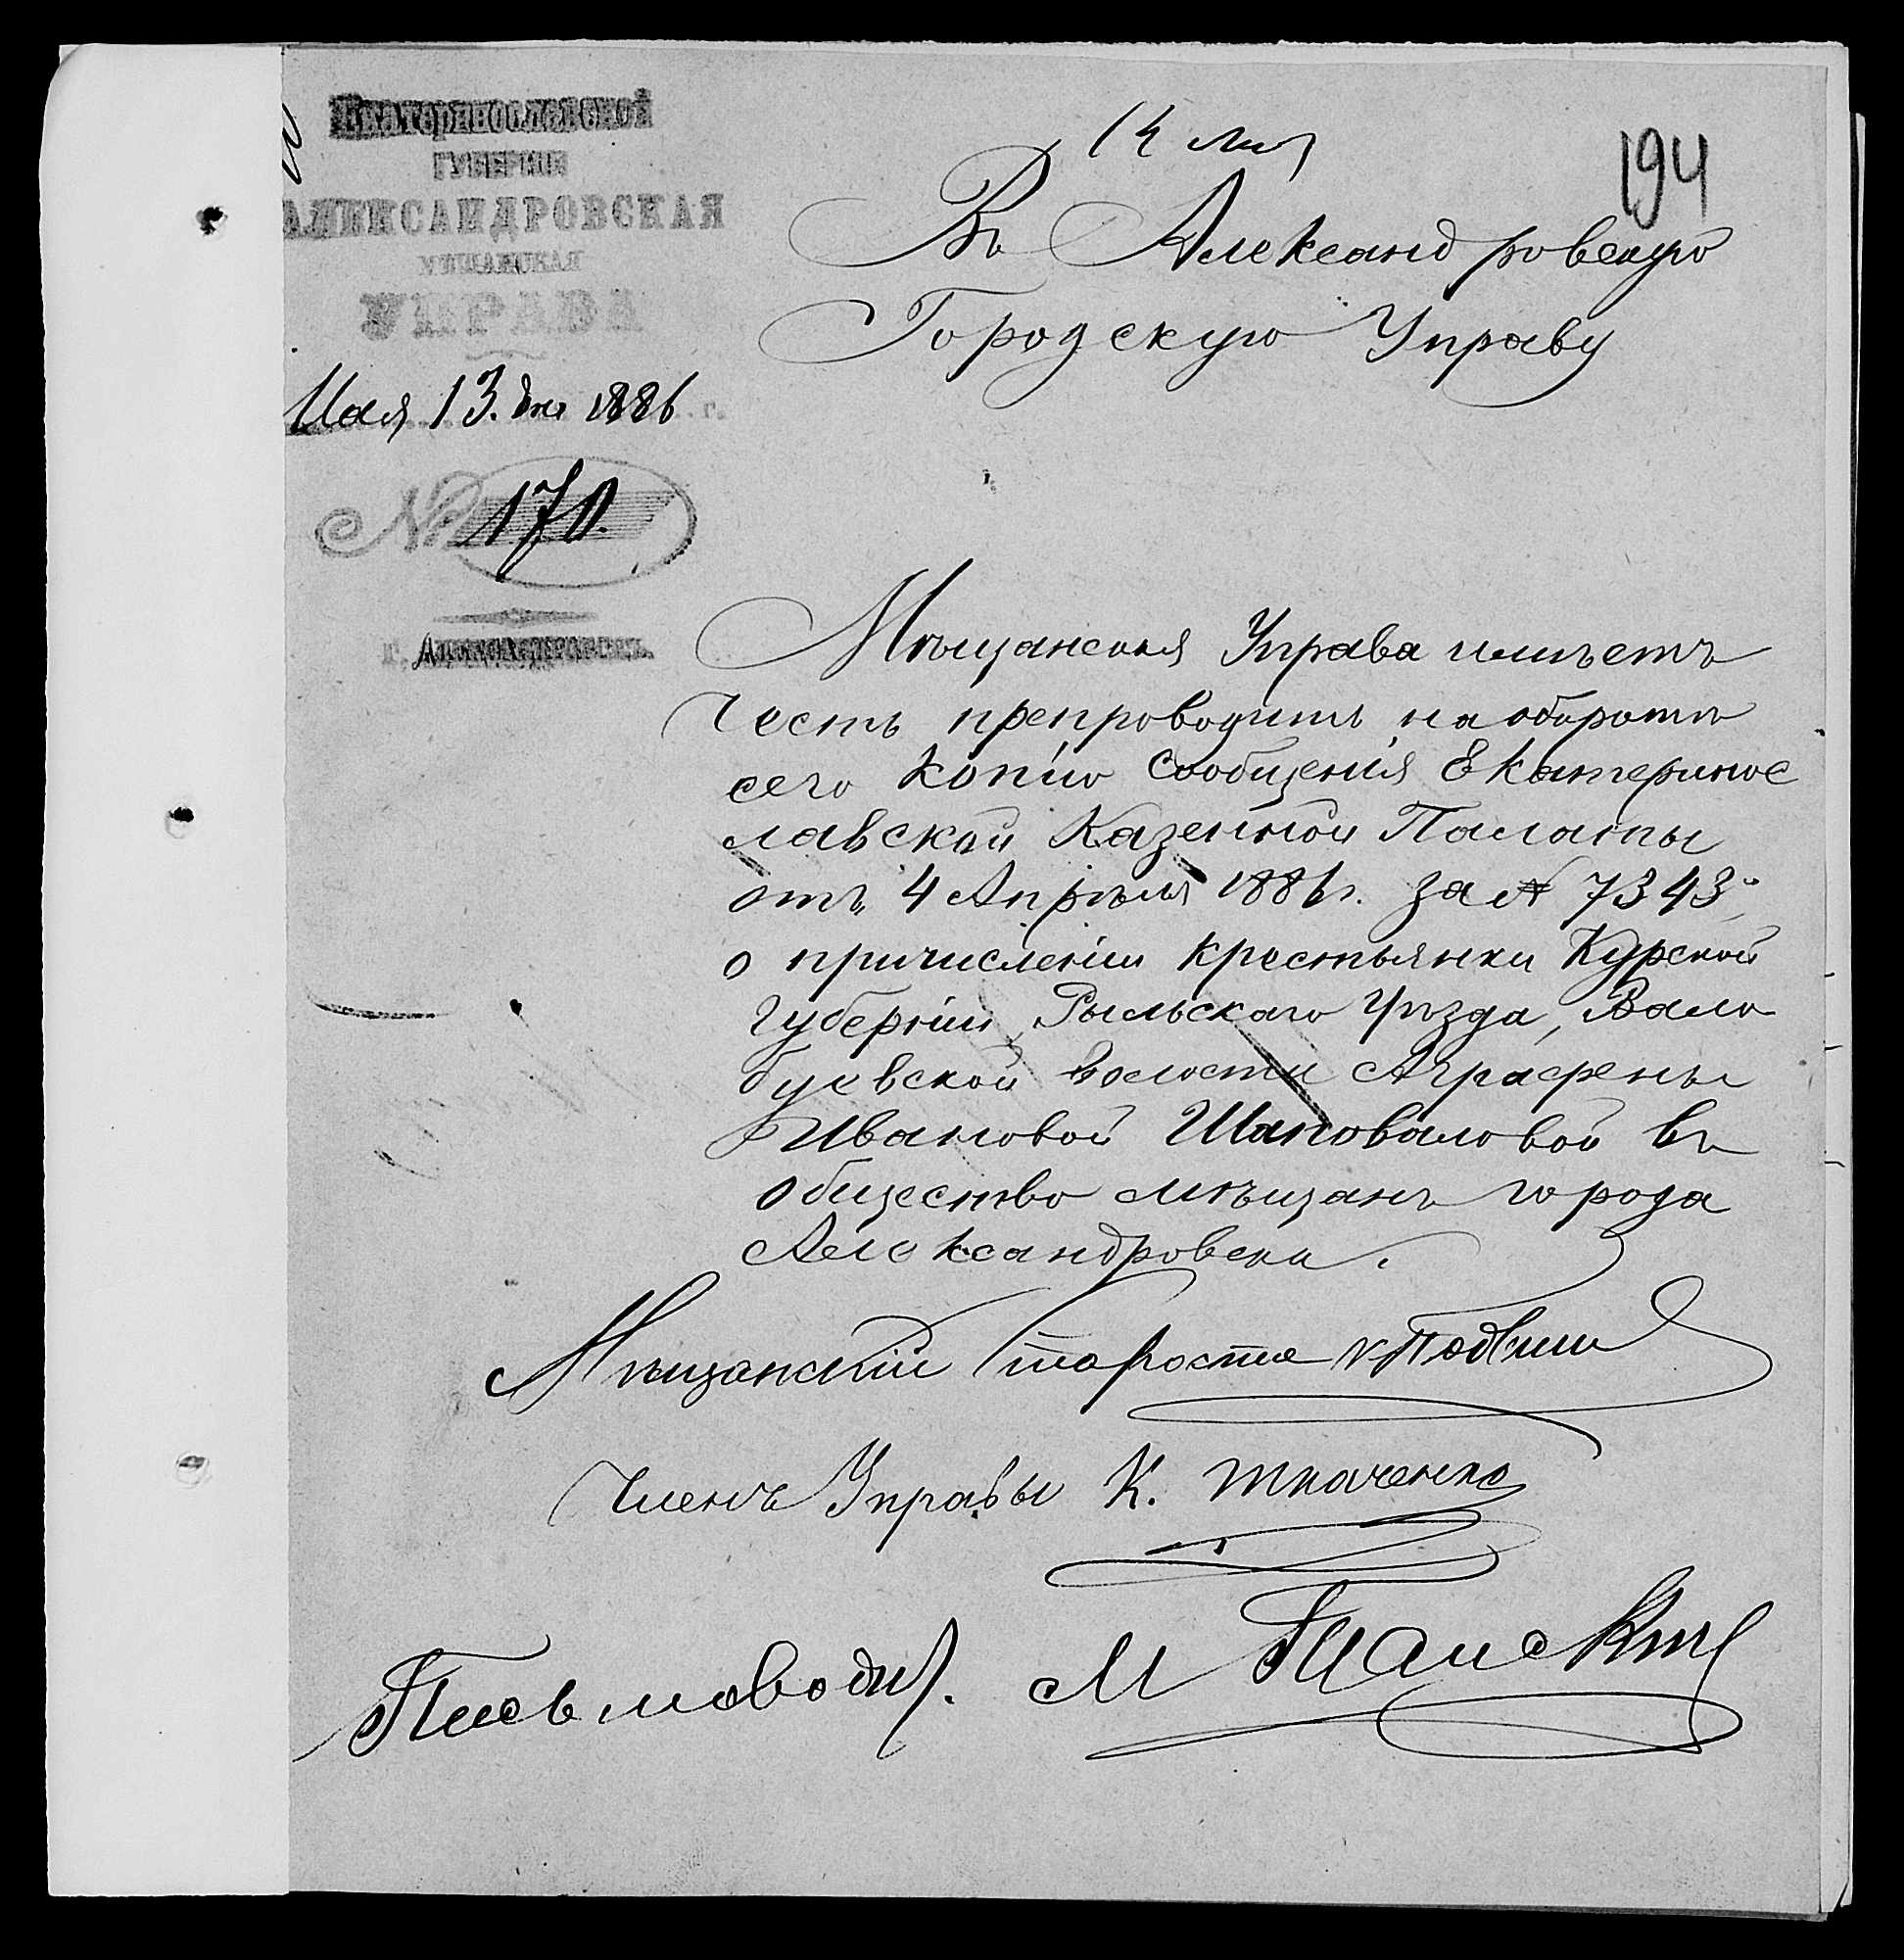 Екатеринославской
ГУБЕРНІИ
АЛЕКСАНДРОВСКАЯ
МѢЩАНСКАЯ
УПРАВА
Мая 13 дня 1886 г.
№ 170.
г. Александровскъ.
14 мая
194
Въ Александровскую
Городскую Управу
Мѣщанская Управа имѣетъ
честь препроводить на оборотѣ
сего копію сообщенія Екатеринос
лавской Казенной Палаты
отъ 4 Апрѣля 1886 г. за № 7343,
о причисленіи крестьянки Курской
губерніи, Рыльскаго уѣзда, Вало
буевской волости Аграфены
Ивановой Шаповаловой въ
общество мѣщанъ города
Александровска.
Мѣщанскій Староста
Членъ Управы К. Ткаченко
Письмовод. М